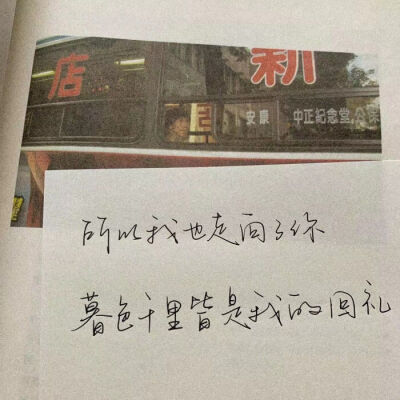 店 新
安康 中正紀念堂.公保
所以我也走向了你
暮色千里皆是我的回礼